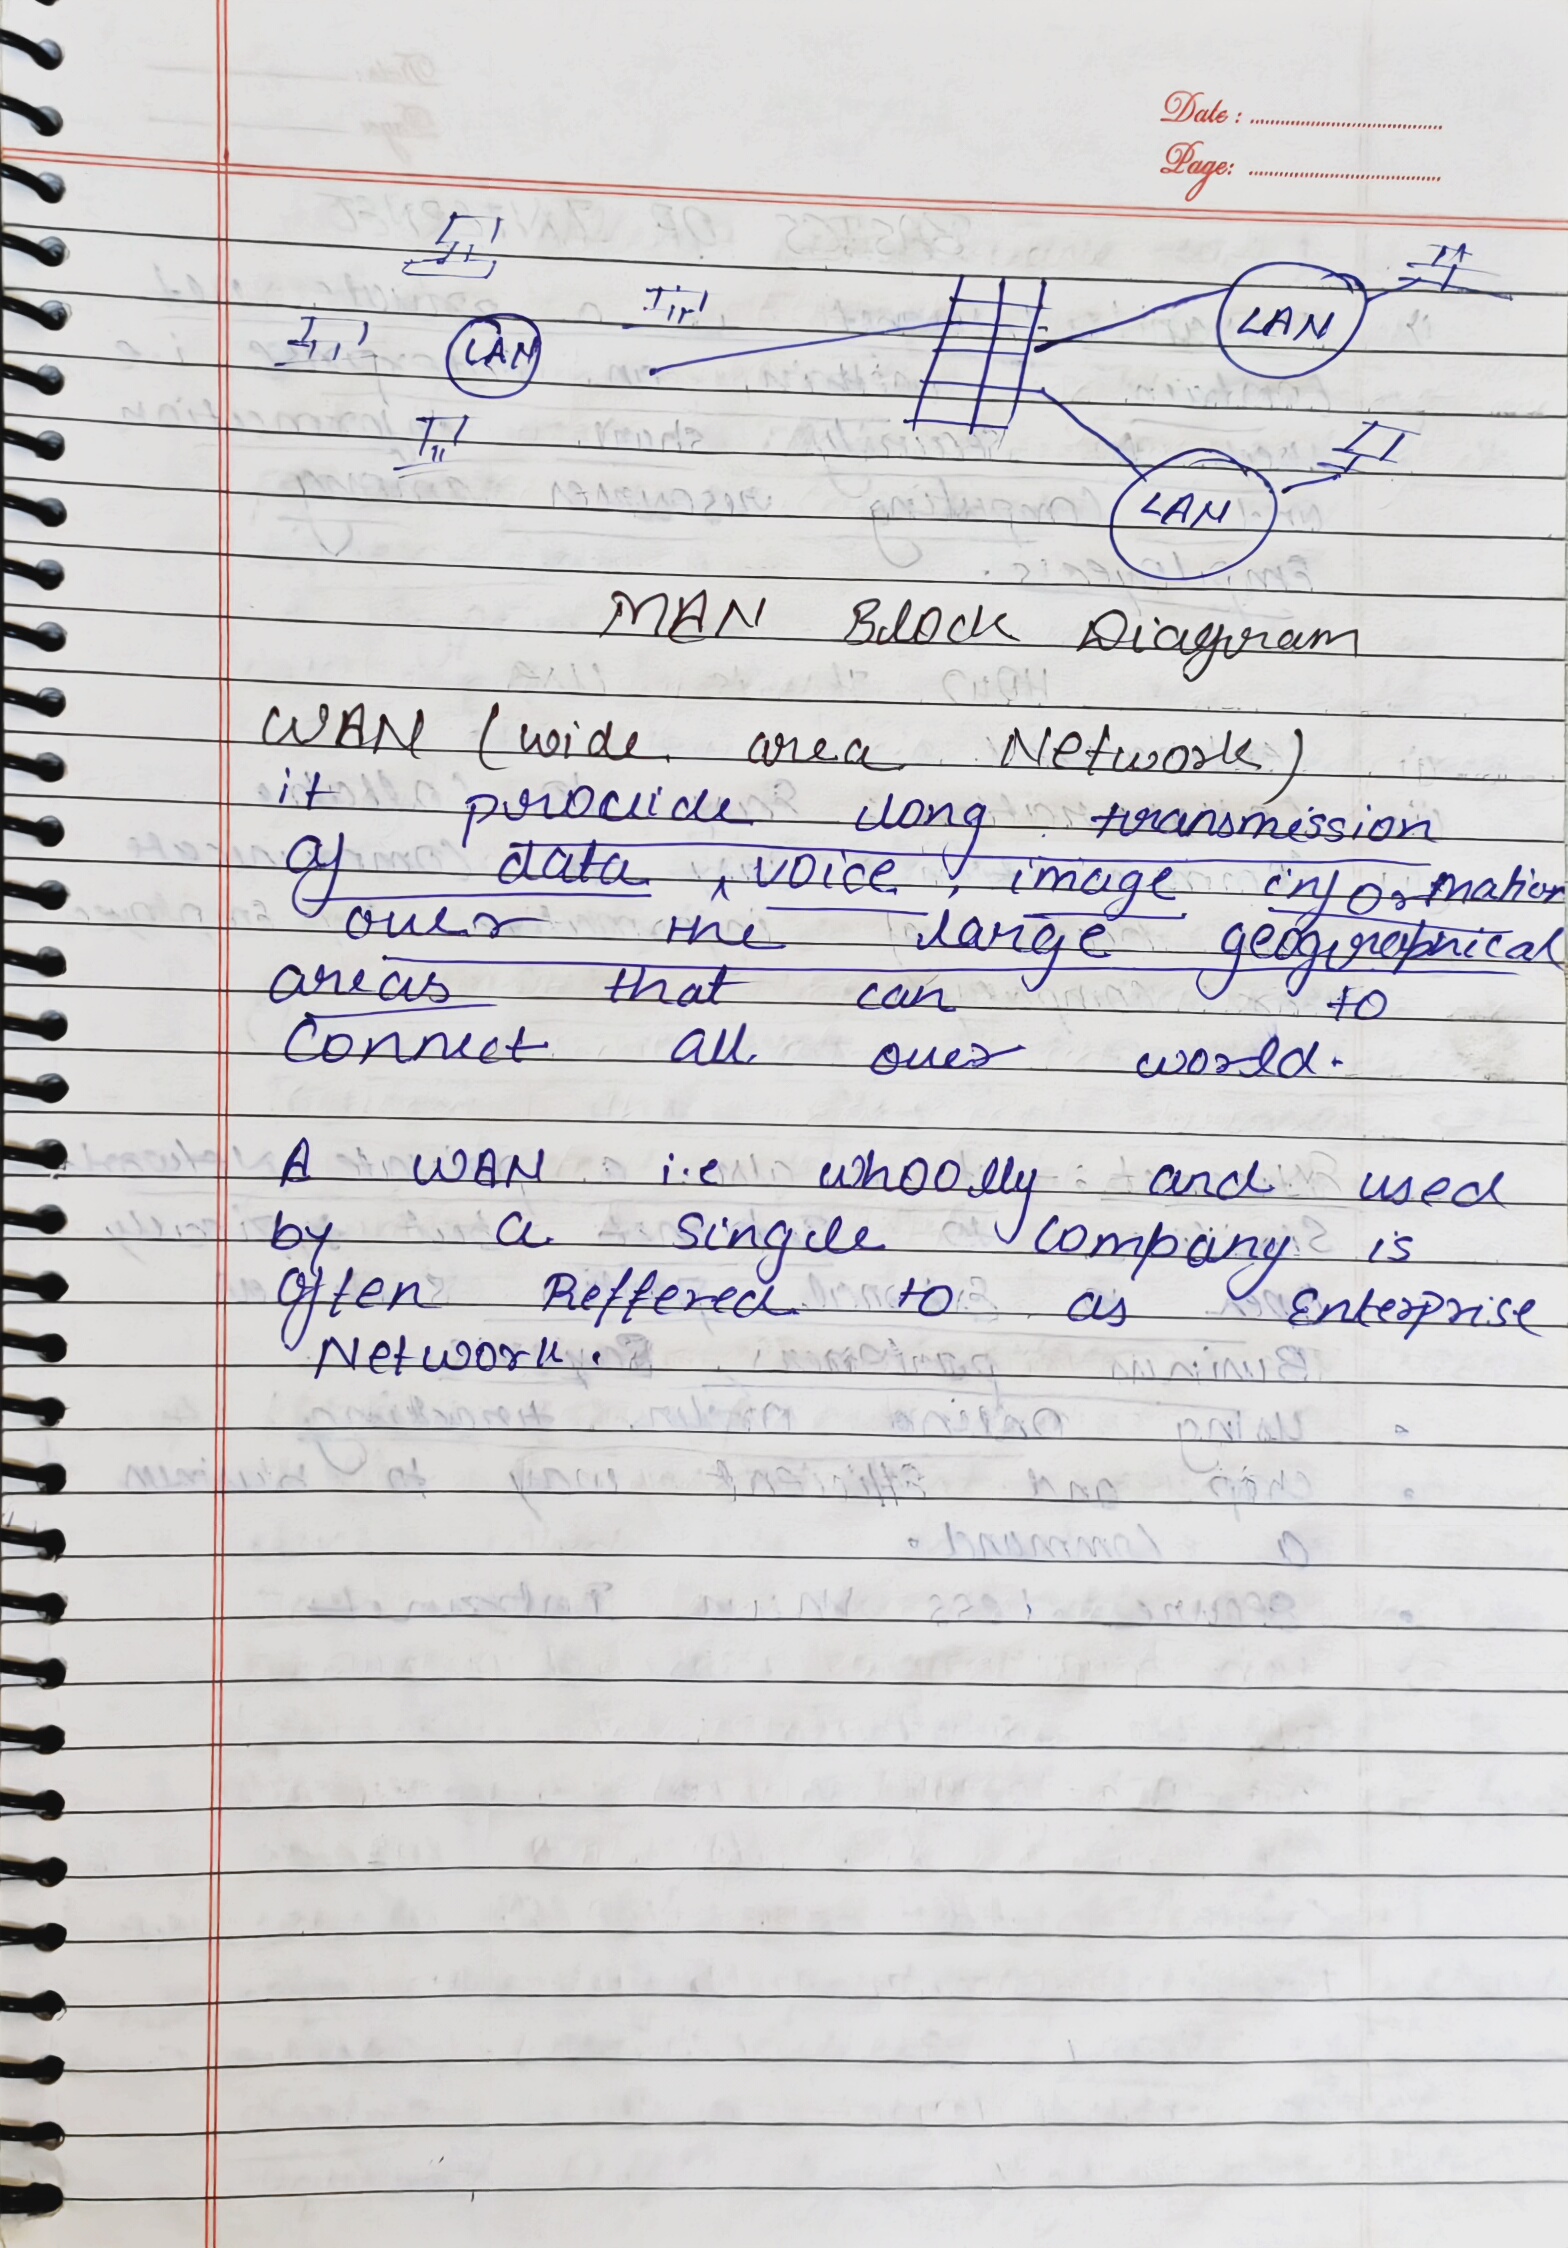 Date:
Page:
LAN
LAN
LAN
MAN Block Diagram
WAN (wide area Network)
it procide long transmission
of data, voice, image information
over the large geographical
areas that can to
Connect all over world.
A WAN i.e whoolly and used
by a single Company is
Often Reffered to as Enterprise
Network.